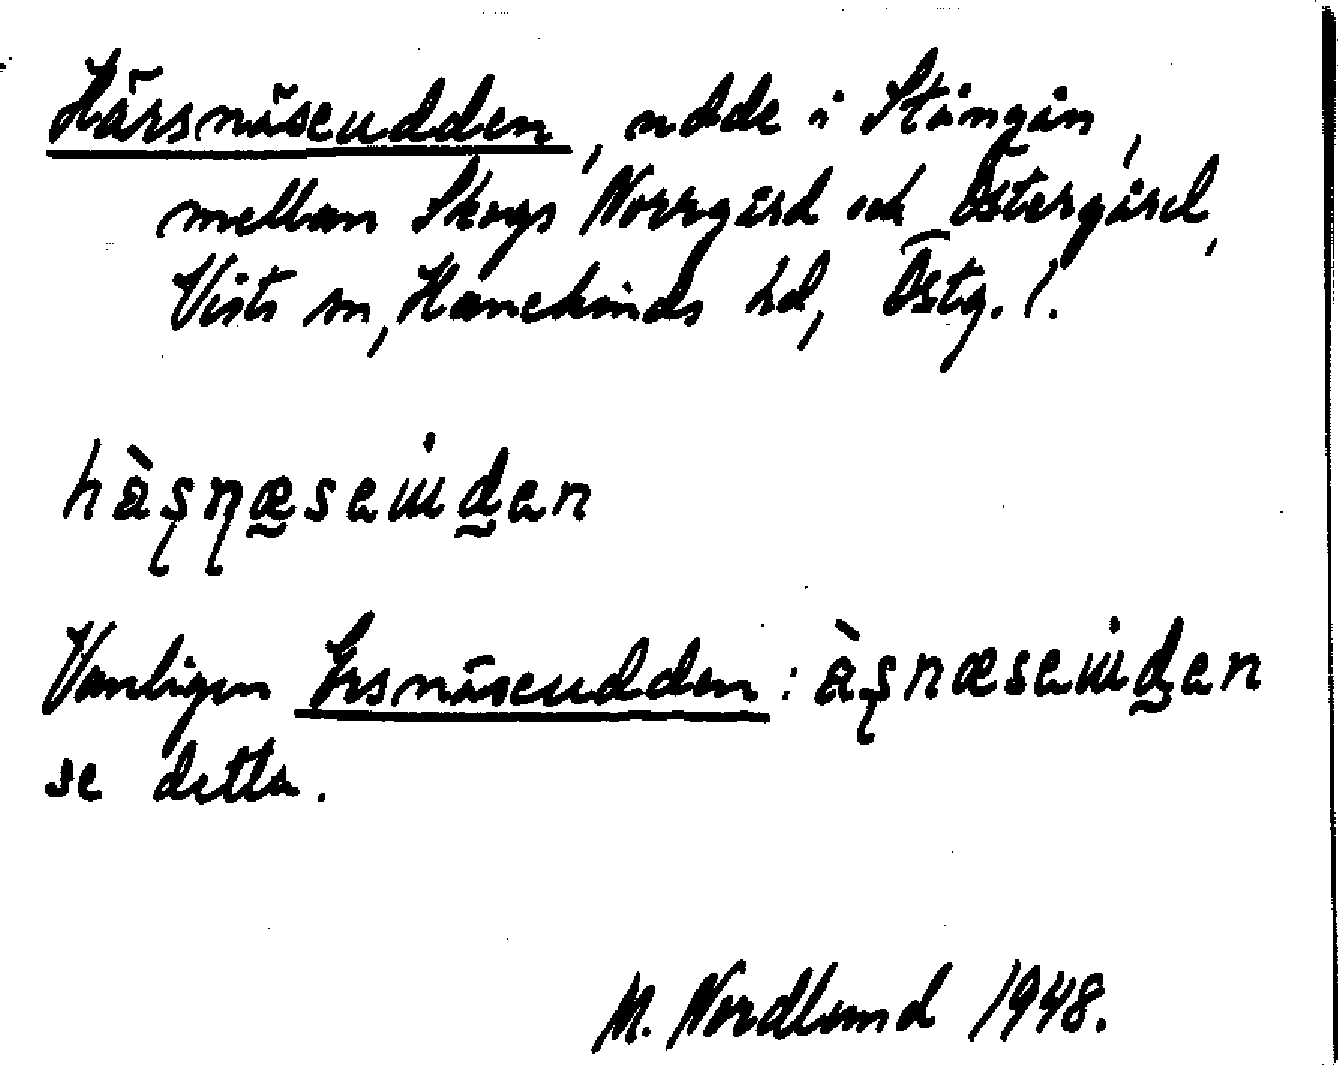 Härsnäseudden, udde i Stångån,
mellan Skogs Norrgård och Östergård,
Vists sn, Hanekinds hd, Östg. l.
hàʂɳæseɯden
Vanligen Ersnäseudden: àʂnæseɯden
se detta.
M. Nordlund 1948.